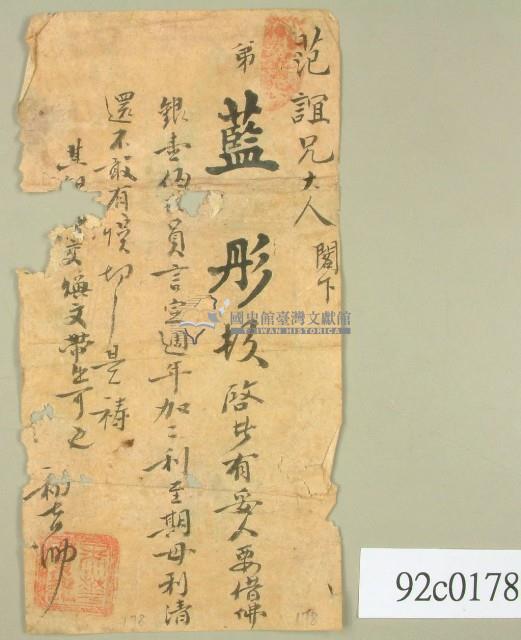 范誼兄大人 閣下
弟 藍彤 頓 啓者有妥人要借佛
銀壹佰 員言定週年加二利至期母利清
還不敢有悞切切是禱
其 交 文帶出可也
初 帅
國史館臺灣文獻館
TAIWAN HISTORICA
178
178
92c0178